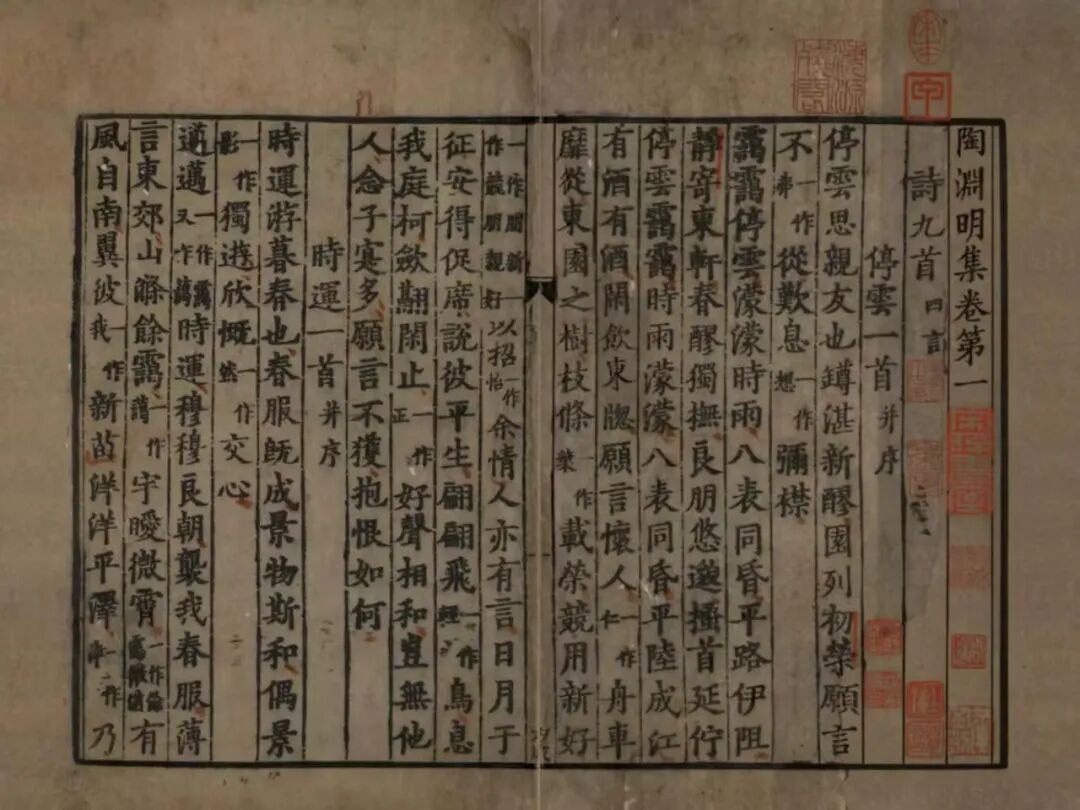 陶淵明集卷第一
詩九首四言
停雲一首并序
停雲思親友也罇湛新醪園列初榮願言
不一作弗從歎息一作想彌襟
靄靄停雲濛濛時雨八表同昏平路伊阻
靜寄東軒春醪獨撫良朋悠邈搔首延佇
停雲靄靄時雨濛濛八表同昏平陸成江
有酒有酒閑飲東牎願言懷人一作仁舟車
靡從東園之樹枝條一作葉載榮競用新好
一作朋新一作競朋親好以招一作怡余情人亦有言日月于
征安得促席說彼平生翩翩飛一作輕鳥息
我庭柯斂翮閑止一作正好聲相和豈無他
人念子寔多願言不獲抱恨如何
時運一首并序
時運游暮春也春服既成景物斯和偶景
一作影獨遊欣慨一作然交心
邁邁一作靄又作藹時運穆穆良朝襲我春服薄
言東郊山滌餘靄一作藹宇曖微霄一作餘有
風自南翼彼一作我新苗洋洋平澤一作津乃